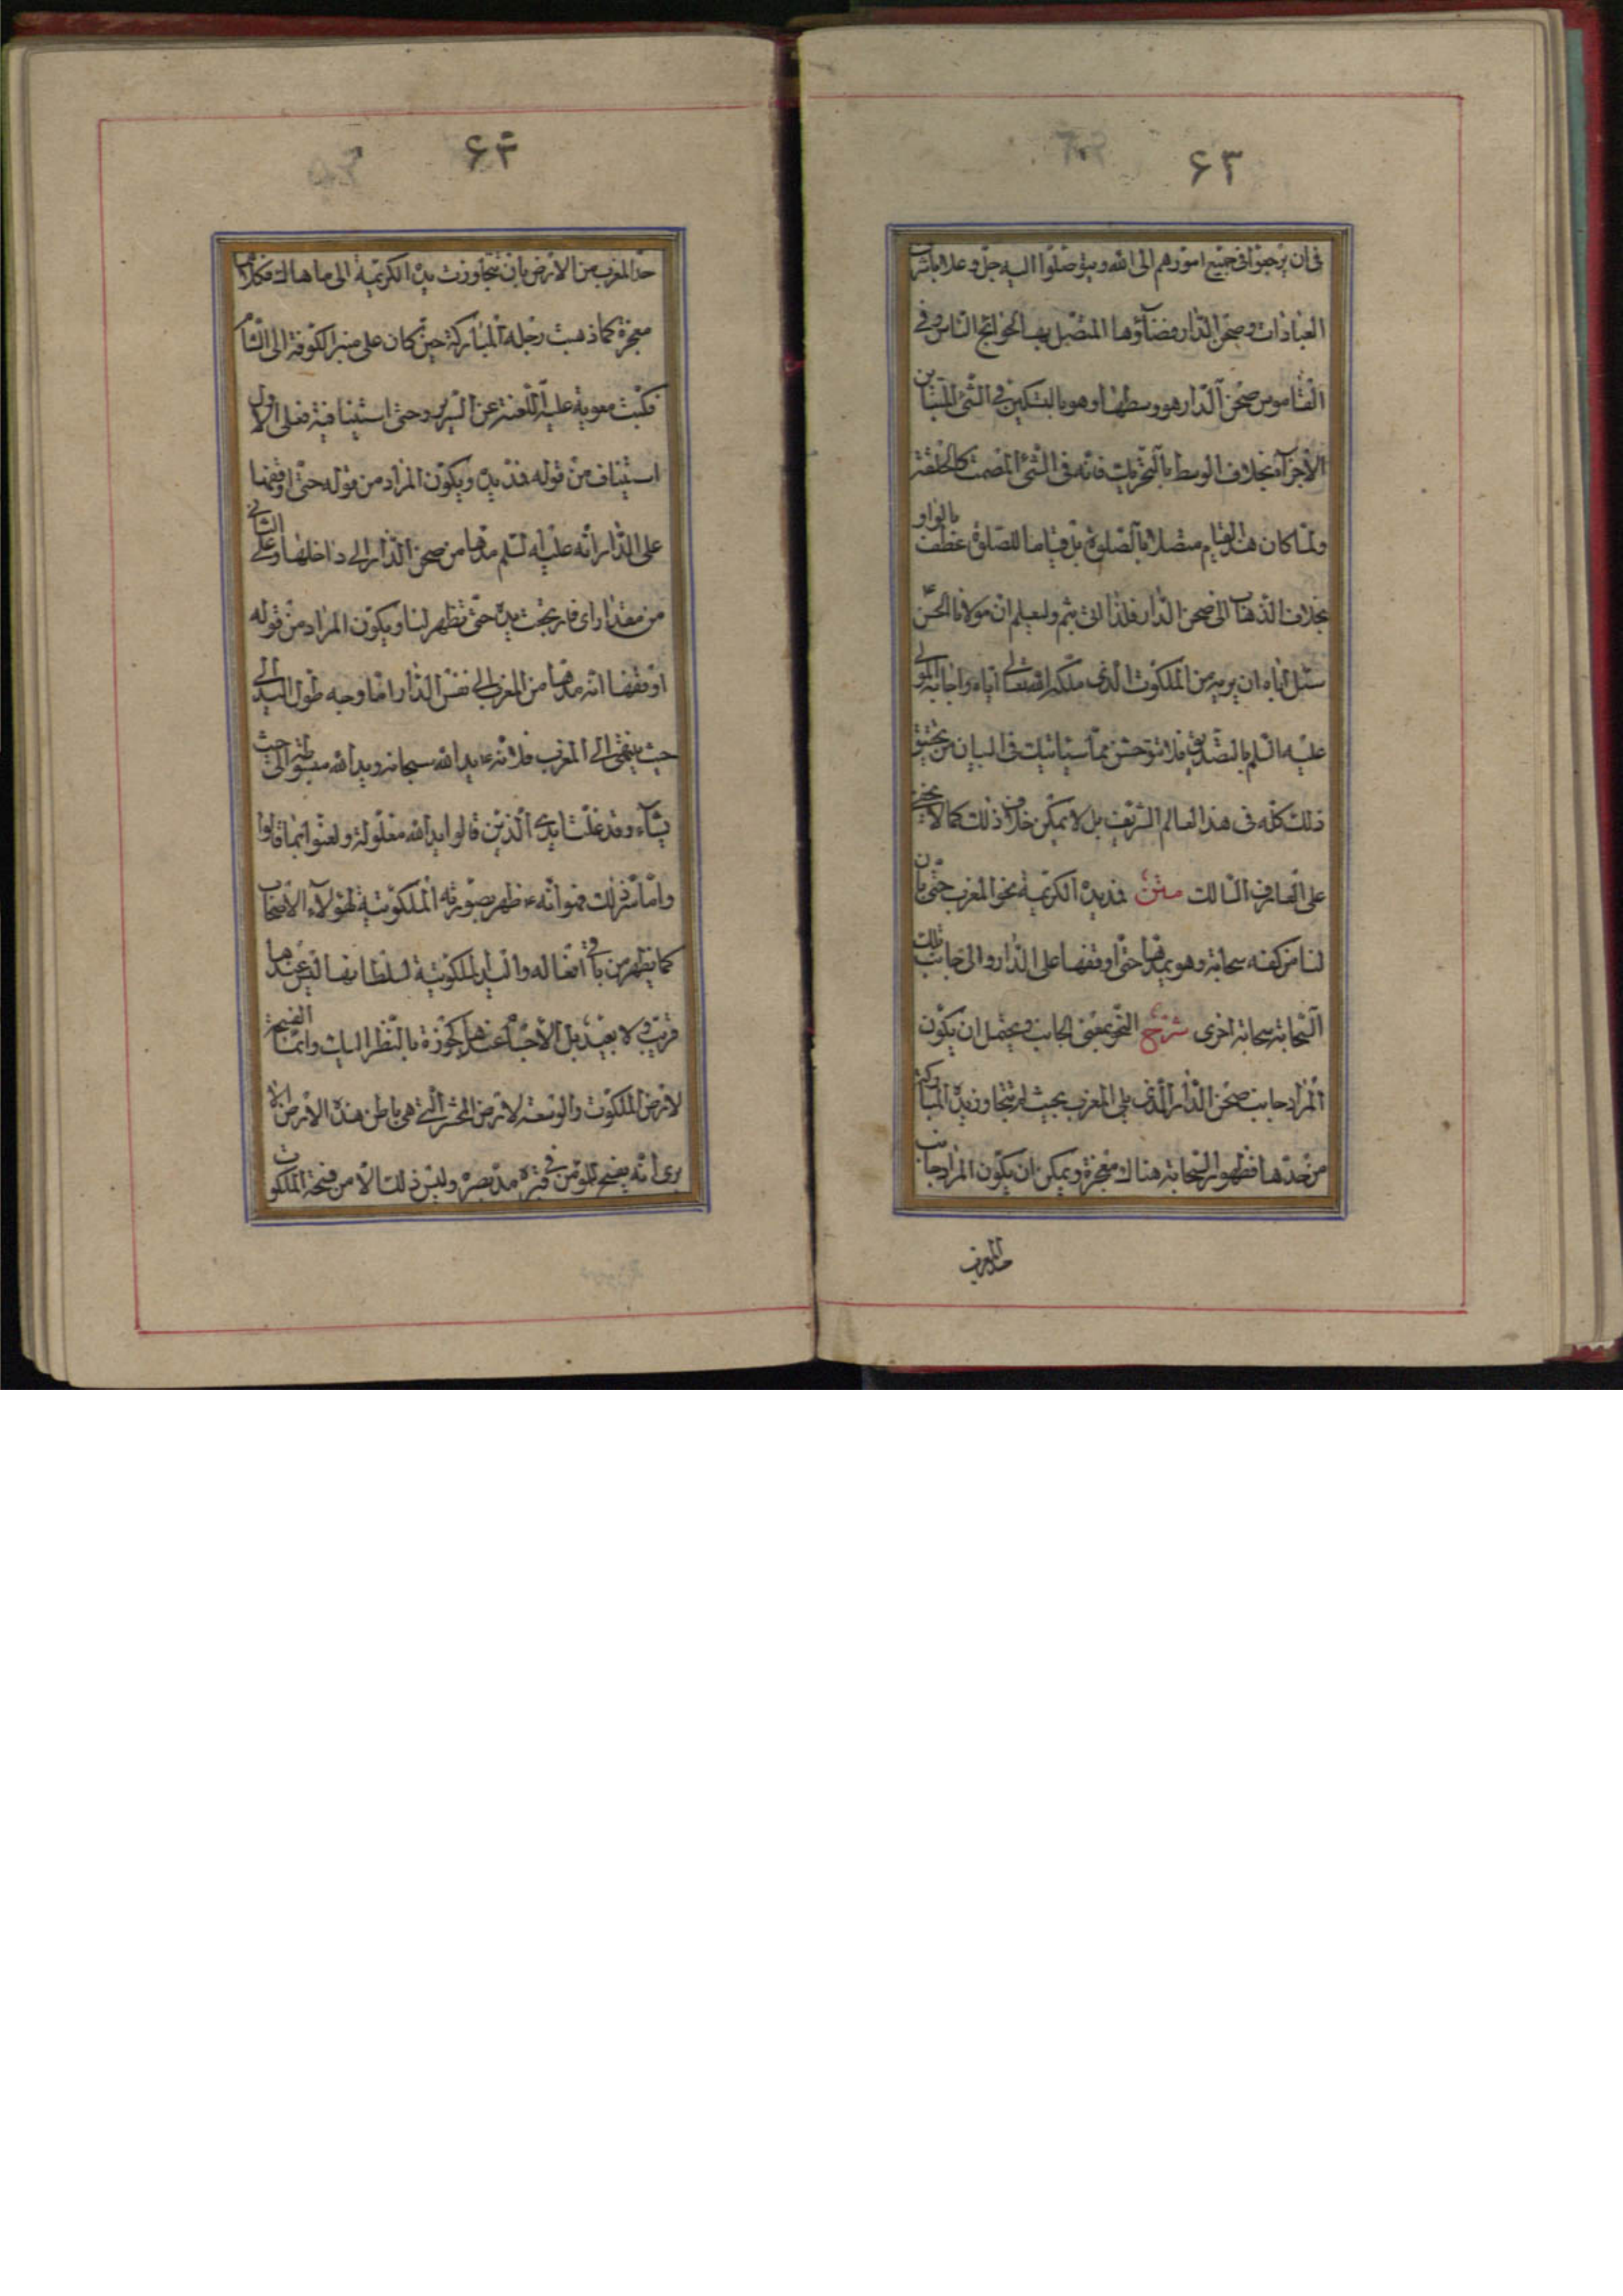 ۶۳
فى ان يرجعوا فى جميع امورهم الى الله ويتوصلوا اليه جل وعلا باشراف
العبادات وصحن الدار فضاؤها المتصل بها لحوائج الناس وفى
القاموس صحن الدار هو وسطها وهو بالتسكين فى الشئ المتباين
الاجزاء بخلاف الوسط بالتحريك فانه فى الشئ المصمت كالحلقة
ولما كان هذا القيام متصلا بالصلوة بل قياما للصلوة عطف بالواو
بخلاف الذهاب الى صحن الدار فلذا اتى بثم وليعلم ان مولانا الحسن
سئل اباه ان يريه من الملكوت الذى ملكه الله تعالى اياه واجابه المولى
عليه السلم بالتصديق فلا تتوحش مما سيأتيك فى البيان من تحقيق
ذلك كله فى هذا العالم الشريف بل لا يمكن خلاف ذلك كما لا يخفى
على العارف السالك متن فمد يده الكريمة نحو المغرب حتى بان
لنا من كفه سحابة وهو يمدها حتى اوقفها على الدار والى جانب تلك
السحابة سحابة اخرى شرح النحو بمعنى الجانب ويحتمل ان يكون
المراد جانب صحن الدار الذى يلى المغرب بحيث لم يتجاوز يده المباركة
من حدها فظهور السحابة هناك معجزة ويمكن ان يكون المراد جانب
حد المغرب
۶۴
حد المغرب من الارض بان تتجاوزت يده الكريمة الى ما هناك فكلاهما
معجزة كما ذهبت رجله المباركة حين كان على منبر الكوفة الى الشام
فكبت معوية عليه اللعنة عن السرير وحتى استينافية فعلى الاول
استيناف من قوله فمد يده ويكون المراد من قوله حتى اوقفها
على الدار انه عليه السلم مدها من صحن الدار الى داخلها وعلى الثانى
من مقدر اى فارتجت يده حتى تظهر لنا ويكون المراد من قوله
اوقفها انه مدها من المغرب الى نفس الدار اما وجه طول اليد الى
حيث ينتهى الى المغرب فلانه ع يد الله سبحانه ويد الله مبسوطة الى حيث
يشاء وقد غلت ايدى الذين قالوا يد الله مغلولة ولعنوا بما قالوا
واما سر ذلك فهو انه ع ظهر بصورته الملكوتية لهؤلاء الاصحاب
كما يظهر من باقى افعاله واليد الملكوتية لسلطانها ليس عندها
قريب ولا بعيد بل الاجسام عندها كجوزة بالنظر اليك وانما الفسحة
لارض الملكوت والوسعة لارض المحشر التى هى باطن هذه الارض الا
يرى انه يفسح للمؤمن فى قبره مد بصره وليس ذلك الا من فسحة الملكوت